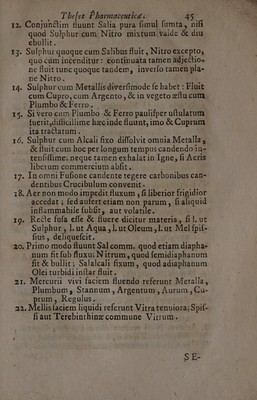 Theses Pharmaceuticæ. 45
12. Conjunctim fluunt Salia pura simul sumta, nisi
quod Sulphur cum Nitro mixtum valde & diu
ebullit.
13. Sulphur quoque cum Salibus fluit, Nitro excepto,
quo cum incenditur: continuata tamen adjectio-
ne fluit tunc quoque tandem, inverso tamen pla-
ne Nitro.
14. Sulphur cum Metallis diversimode se habet: Fluit
cum Cupro, cum Argento, & in vegeto æstu cum
Plumbo & Ferro.
15. Si vero cum Plumbo & Ferro paulisper ustulatum
fuerit, difficillime hæc inde fluunt, imo & Cuprum
ita tractatum.
16. Sulphur cum Alcali fixo dissolvit omnia Metalla,
& fluit cum hoc per longum tempus candendo in-
tensissime: neque tamen exhalat in Igne, si Aeris
liberum commercium absit.
17. In omni Fusione candente tegere carbonibus can-
dentibus Crucibulum convenit.
18. Aer non modo impedit fluxum, si liberior frigidior
accedat; sed aufert etiam non parum, si aliquid
inflammabile subsit, aut volatile.
19. Recte fusa esse & fluere dicitur materia, si l. ut
Sulphur, l. ut Aqua, l. ut Oleum, l. ut Mel spis-
sius, deliquescit.
20. Primo modo fluunt Sal comm. quod etiam diapha-
num fit sub fluxu: Nitrum, quod semidiaphanum
fit & bullit; Salalcali fixum, quod adiaphanum
Olei turbidi instar fluit.
21. Mercurii vivi faciem fluendo referunt Metalla,
Plumbum, Stannum, Argentum, Aurum, Cu-
prum, Regulus.
22. Mellis faciem liquidi referunt Vitra tenuiora; Spis-
si aut Terebinthinæ commune Vitrum.
SE-